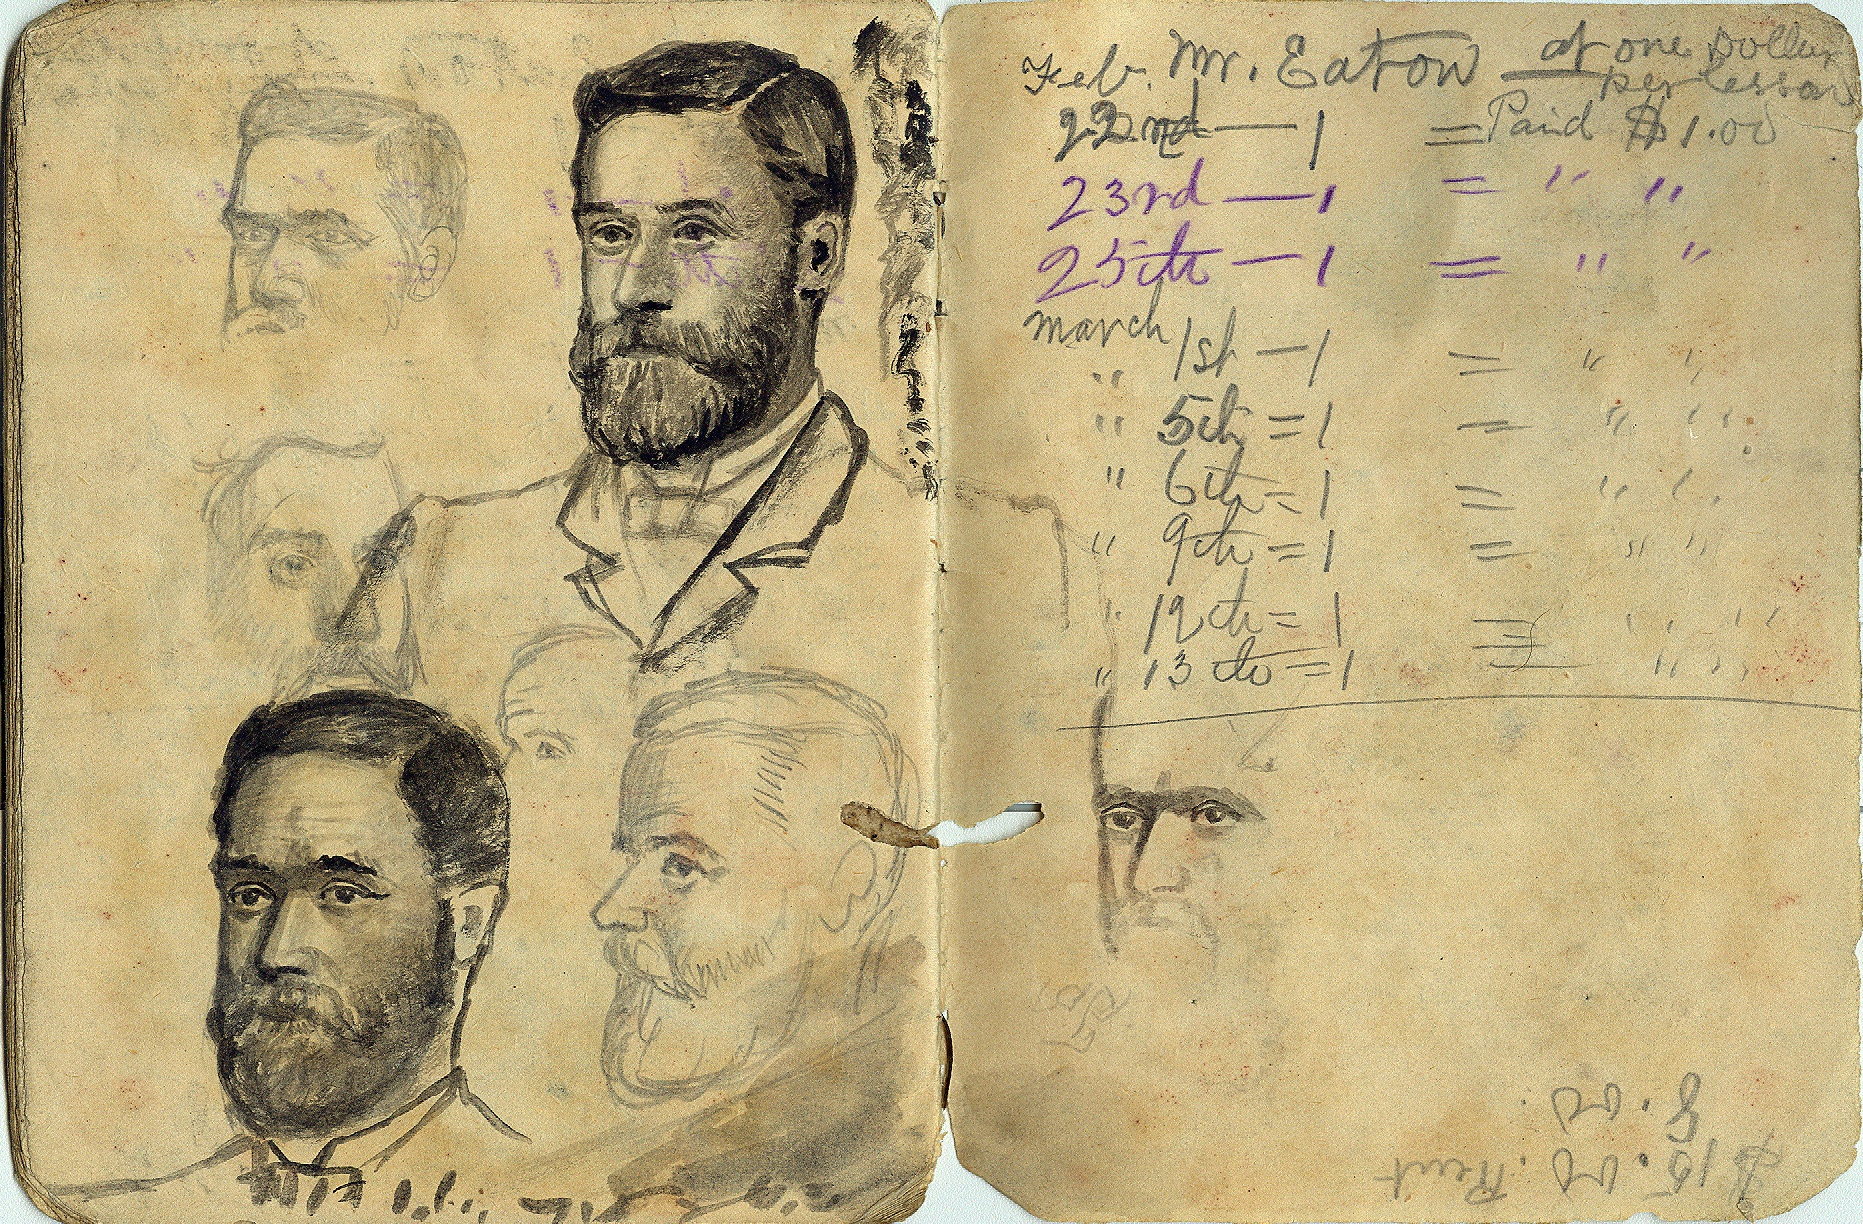 Feb. Mr. Eaton at one Dollar
per lesson
22nd — 1 = Paid $1.00
23rd — 1 = " "
25th — 1 = " "
march 1st — 1 = " "
" 5th = 1 = " "
" 6th = 1 = " "
" 9th = 1 = " "
" 12th = 1 = " "
" 13th = 1 = " "
$15.00. Rent
8.00.